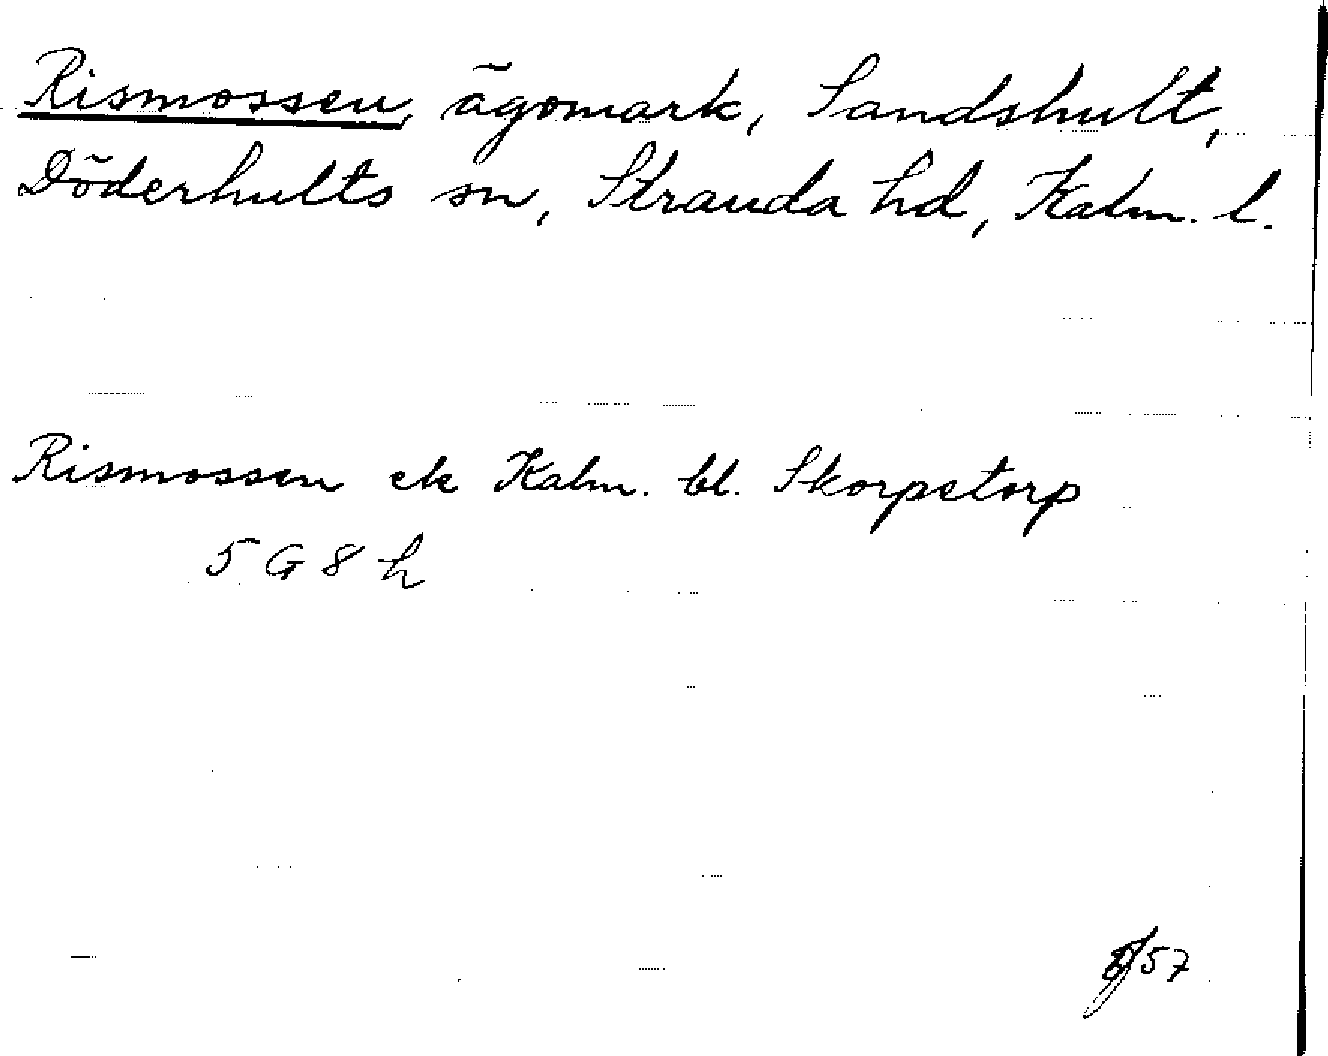 Rismossen, ägomark, Sandshult,
Döderhults sn, Stranda hd, Kalm. l.
Rismossen ek Kalm. bl. Skorpetorp
5 G 8 h
57